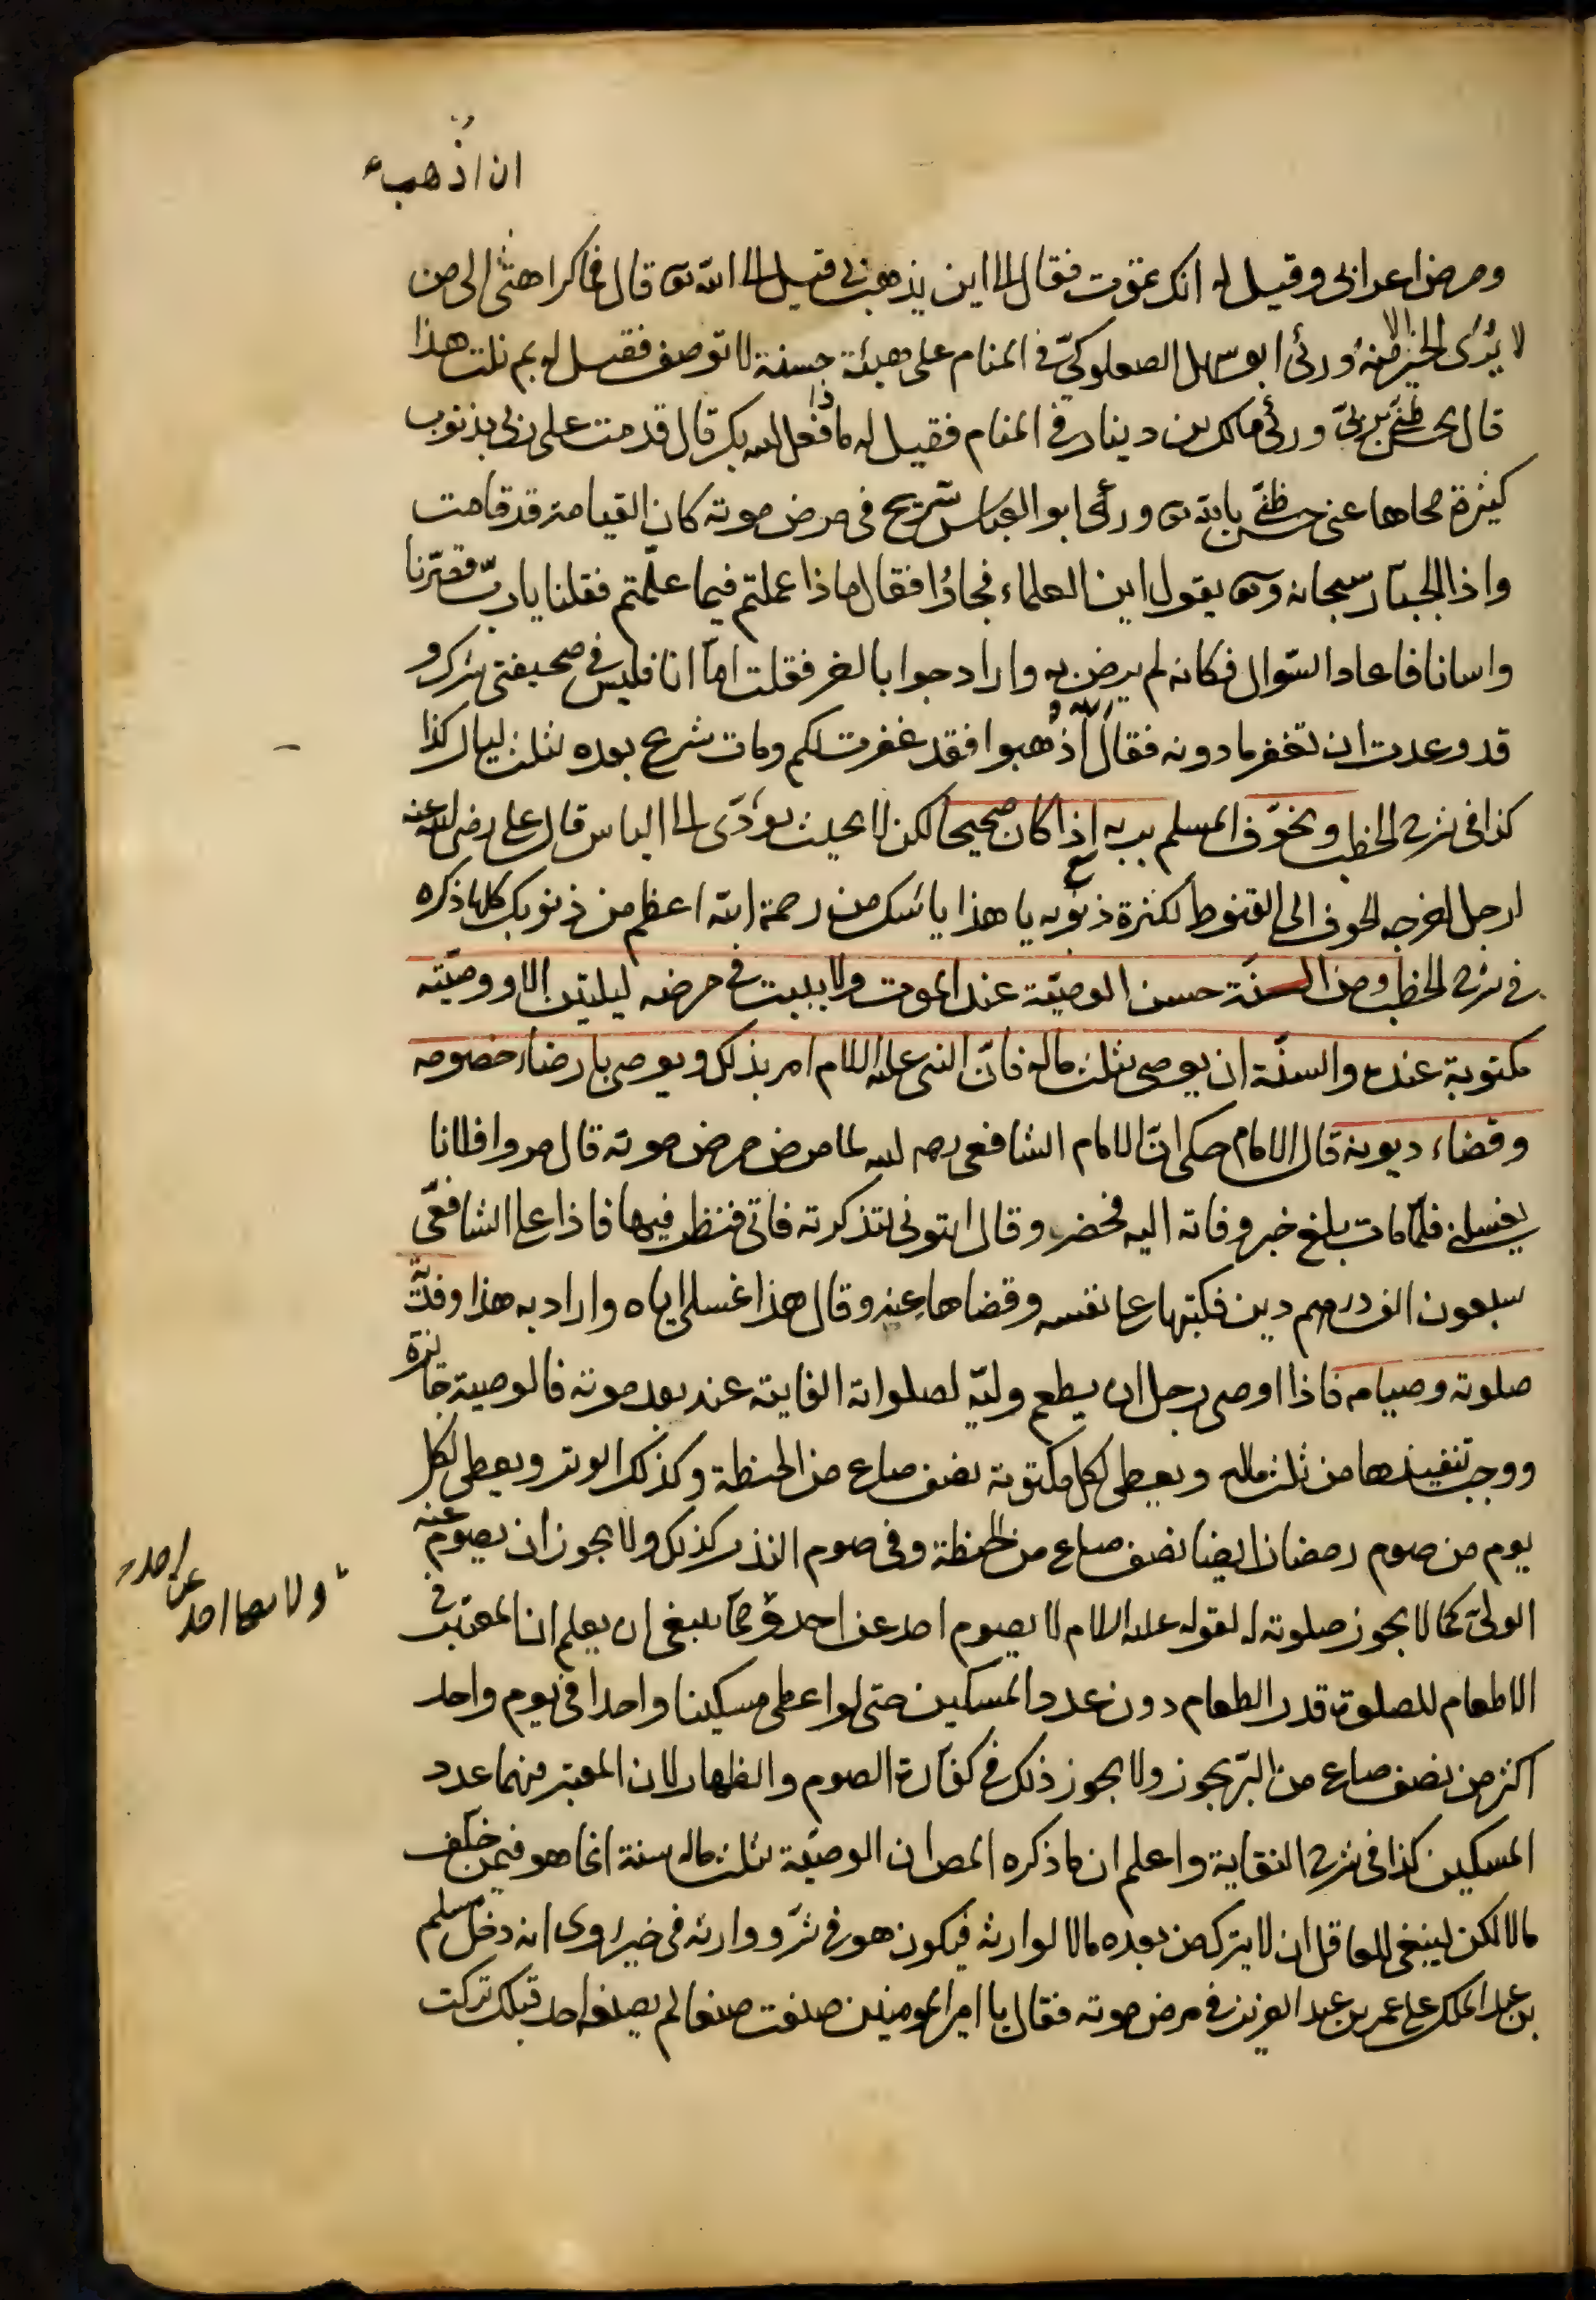 ان اذهب
ومرض اعرابى وقيل له انك تموت فقال الى اين يذهب بى قيل الى الله تع قال فما كراهتى الى من
لا يرى الخير الا منه ورئى ابو سهل الصعلوكى فى المنام على هيئة حسنة لا توصف فقيل له بم نلت هذا
قال بحسن ظنى بربى ورئى مالك بن دينار فى المنام فقيل له ماذا فعل الله بك قال قدمت على ربى بذنوب
كثيرة محاها عنى حسن ظنى بالله تع ورأى ابو العباس شريح فى مرض موته كان القيامة قد قامت
واذا الجبار سبحانه وتع يقول اين العلماء فجاؤا فقال ماذا عملتم فيما علمتم فقلنا يا رب قصرنا
واسانا فاعاد السوال فكانه لم يرض به واراد جوابا اخر فقلت اما انا فليس فى صحيفتى شرك و
قد وعدت ان تغفر ما دونه فقال الله اذهبوا فقد غفرت لكم ومات شريح بعده بثلث ليال كذا
كذا فى شرح الخطب ويخوف المسلم بربه اذا كان صحيحا لكن لا بحيث يؤدى الى الياس قال على رضى الله عنه
لرجل اخرجه الخوف الى القنوط لكثرة ذنوبه يا هذا يأسك من رحمة الله اعظم من ذنوبك كلها ذكره
فى شرح الخطب ومن السنة حسن الوصية عند الموت ولا يبيت فى مرضه ليلتين الا ووصيته
مكتوبة عنده والسنة ان يوصى بثلث ماله فان النبى عليه السلام امر بذلك ويوصى بارضاء خصومه
وقضاء ديونه قال الامام حكى ان الامام الشافعى رحمه الله لما مرض مرض موته قال مروا فلانا
يغسلنى فلما مات بلغ خبر وفاته اليه فحضر وقال ائتونى بتذكرته فاتى فنظر فيها فاذا على الشافعى
سبعون الف درهم دين فكتبها على نفسه وقضاها عنه وقال هذا غسلى اياه واراد به هذا وفدية
صلوته وصيامه فاذا اوصى رجل ان يطعم وليه لصلواته الفايتة عنه بعد موته فالوصية جائزة
ووجب تنفيذها من ثلث ماله ويعطى لكل مكتوبة نصف صاع من الحنطة وكذلك الوتر ويعطى لكل
يوم من صوم رمضان ايضا نصف صاع من الحنطة وفى صوم النذر كذلك ولا يجوز ان يصوم عنه
الولى كما لا يجوز صلوته له لقوله عليه السلام لا يصوم احد عن احد ومما ينبغى ان يعلم ان المعتبر فى
ولا يصلى احد عن احد
الاطعام للصلوة قدر الطعام دون عدد المسكين حتى لو اعطى مسكينا واحدا فى يوم واحد
اكثر من نصف صاع من البر يجوز ولا يجوز ذلك فى كفارة الصوم والظهار لان المعتبر فيهما عدد
المسكين كذا فى شرح النقاية واعلم ان ما ذكره المص ان الوصية بثلث ماله سنة انما هو فيمن خلف
مالا لكن ينبغى للعاقل ان لا يترك من بعده مالا لوارثه فيكون هو فى شر ووارثه فى خير روى انه دخل مسلم
بن عبد الملك على عمر بن عبد العزيز فى مرض موته فقال يا امير المومنين صنعت صنعا لم يصنعه احد قبلك تركت